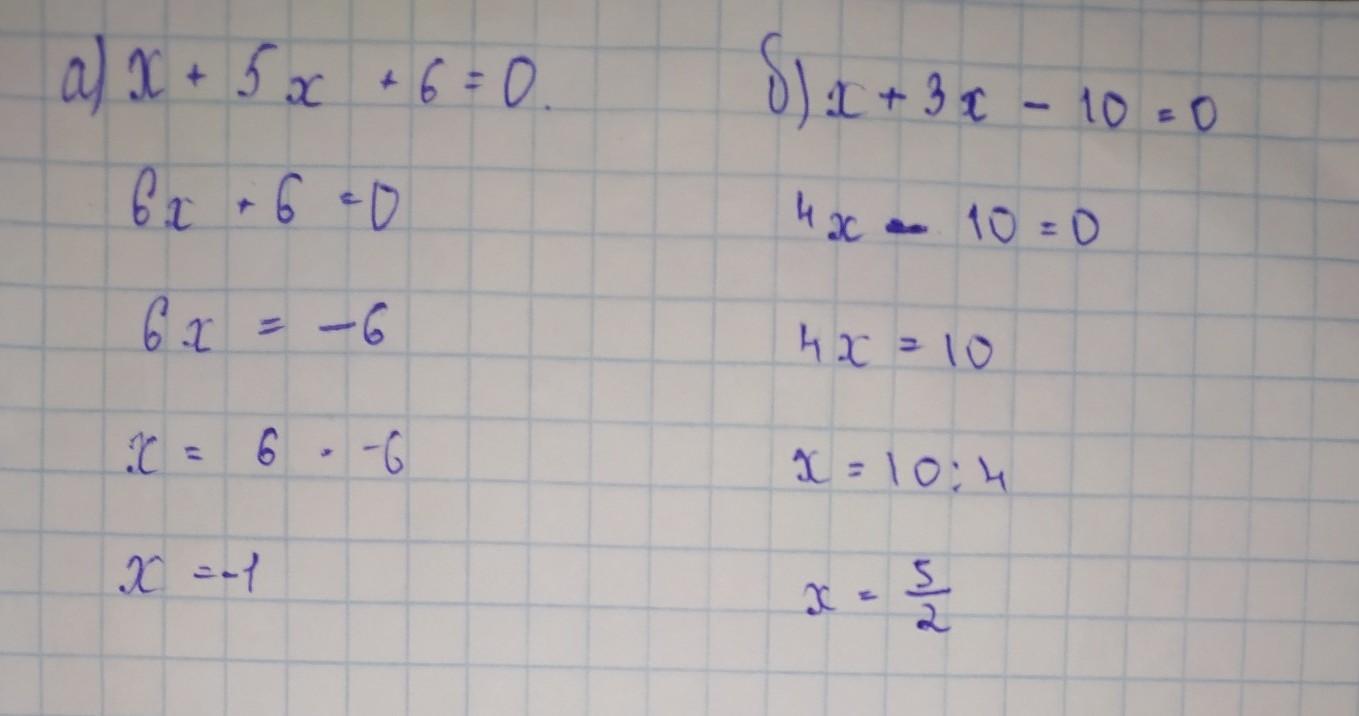 а) x + 5x + 6 = 0.
6x + 6 = 0
6x = -6
x = 6 · -6
x = -1
б) x + 3x - 10 = 0
4x - 10 = 0
4x = 10
x = 10 : 4
x = 5/2